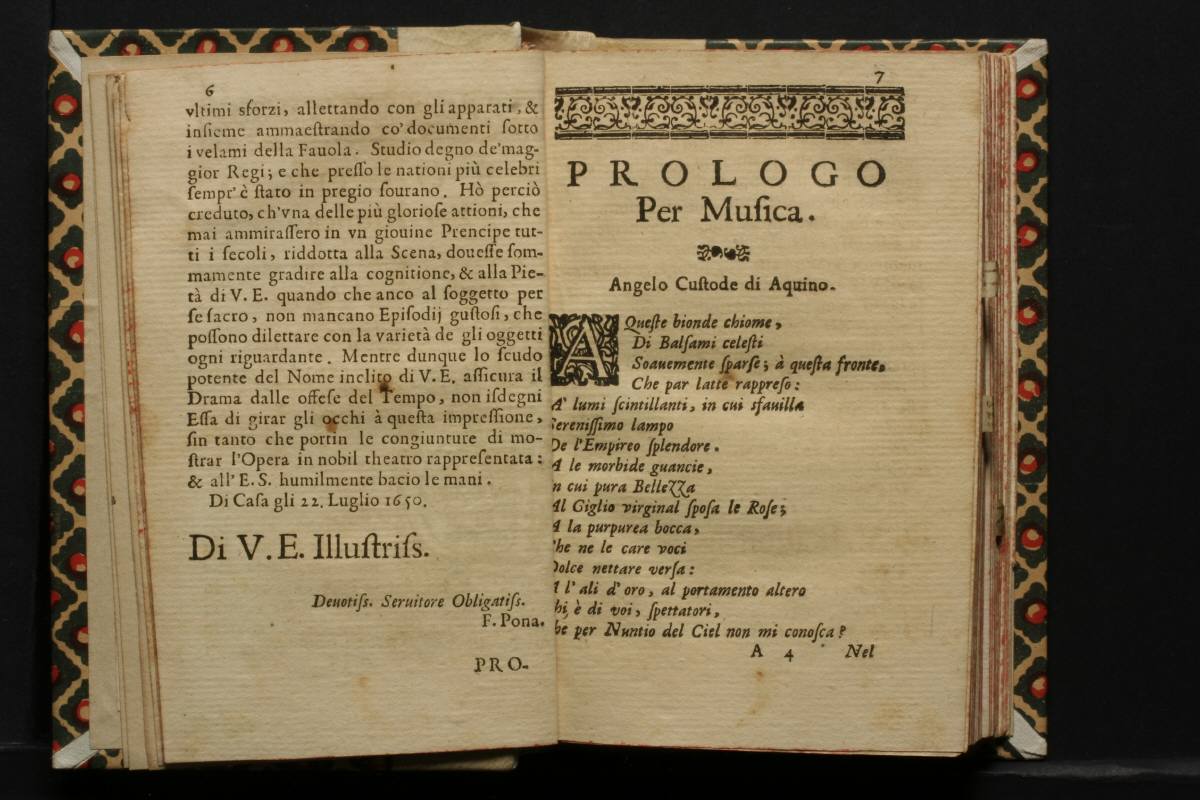 6
vltimi sforzi, allettando con gli apparati, &
inſieme ammaeſtrando co' documenti ſotto
i velami della Fauola. Studio degno de' mag-
gior Regi; e che preſſo le nationi più celebri
ſempr' è ſtato in pregio ſourano. Hò perciò
creduto, ch'vna delle più glorioſe attioni, che
mai ammiraſſero in vn giouine Prencipe tut-
ti i ſecoli, riddotta alla Scena, doueſſe ſom-
mamente gradire alla cognitione, & alla Pie-
tà di V. E. quando che anco al ſoggetto per
ſe ſacro, non mancano Epiſodij guſtoſi, che
poſſono dilettare con la varietà de gli oggetti
ogni riguardante. Mentre dunque lo ſcudo
potente del Nome inclito di V. E. aſſicura il
Drama dalle offeſe del Tempo, non iſdegni
Eſſa di girar gli occhi à queſta impreſſione,
ſin tanto che portin le congiunture di mo-
ſtrar l'Opera in nobil theatro rappreſentata:
& all' E. S. humilmente bacio le mani.
Di Caſa gli 22. Luglio 1650.
Di V. E. Illuſtriſs.
Deuotiſs. Seruitore Obligatiſs.
F. Pona.
PRO-
7
PROLOGO
Per Muſica.
Angelo Cuſtode di Aquino.
A Queſte bionde chiome,
Di Balſami celeſti
Soauemente ſparſe; à queſta fronte,
Che par latte rappreſo:
A' lumi ſcintillanti, in cui sfauilla
Sereniſſimo lampo
De l'Empireo ſplendore.
A le morbide guancie,
n cui pura Bellezza
Al Giglio virginal ſpoſa le Roſe;
A la purpurea bocca,
he ne le care voci
Dolce nettare verſa:
A l' ali d' oro, al portamento altero
hi è di voi, ſpettatori,
he per Nuntio del Ciel non mi conoſca?
A 4 Nel